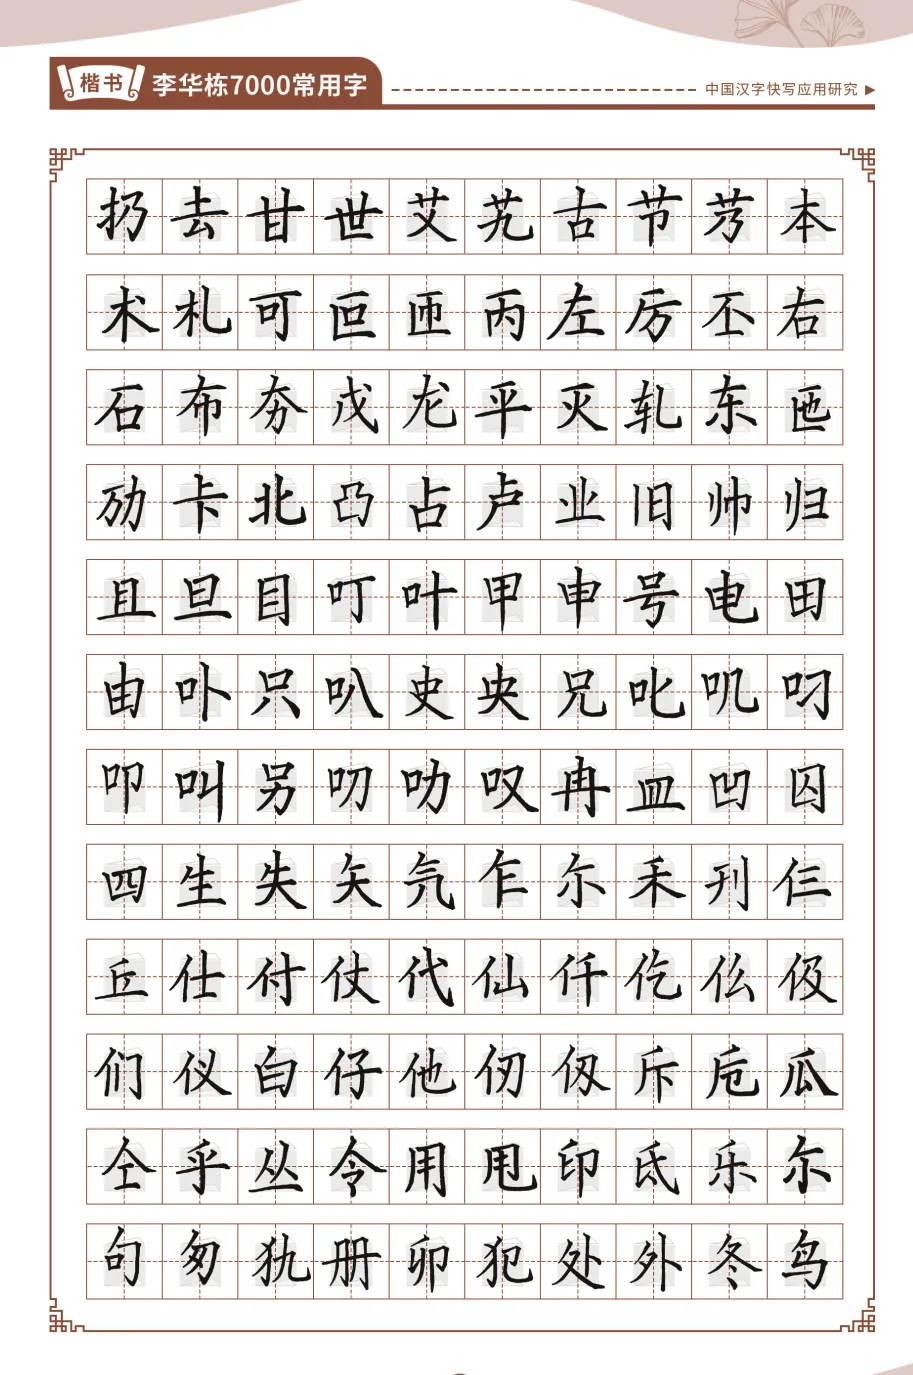 楷书 李华栋7000常用字
中国汉字快写应用研究
扔去甘世艾艽古节艿本
术札可叵匝丙左厉丕右
石布夯戊龙平灭轧东匜
劢卡北凸占卢业旧帅归
且旦目叮叶甲申号电田
由卟只叭史央兄叱叽叼
叩叫另叨叻叹冉皿凹囚
四生失矢氕乍尔禾刊仨
丘仕付仗代仙仟仡仫伋
们仪白仔他仞伋斥卮瓜
仝乎丛令用甩印氐乐尔
句匆犰册卯犯处外冬鸟